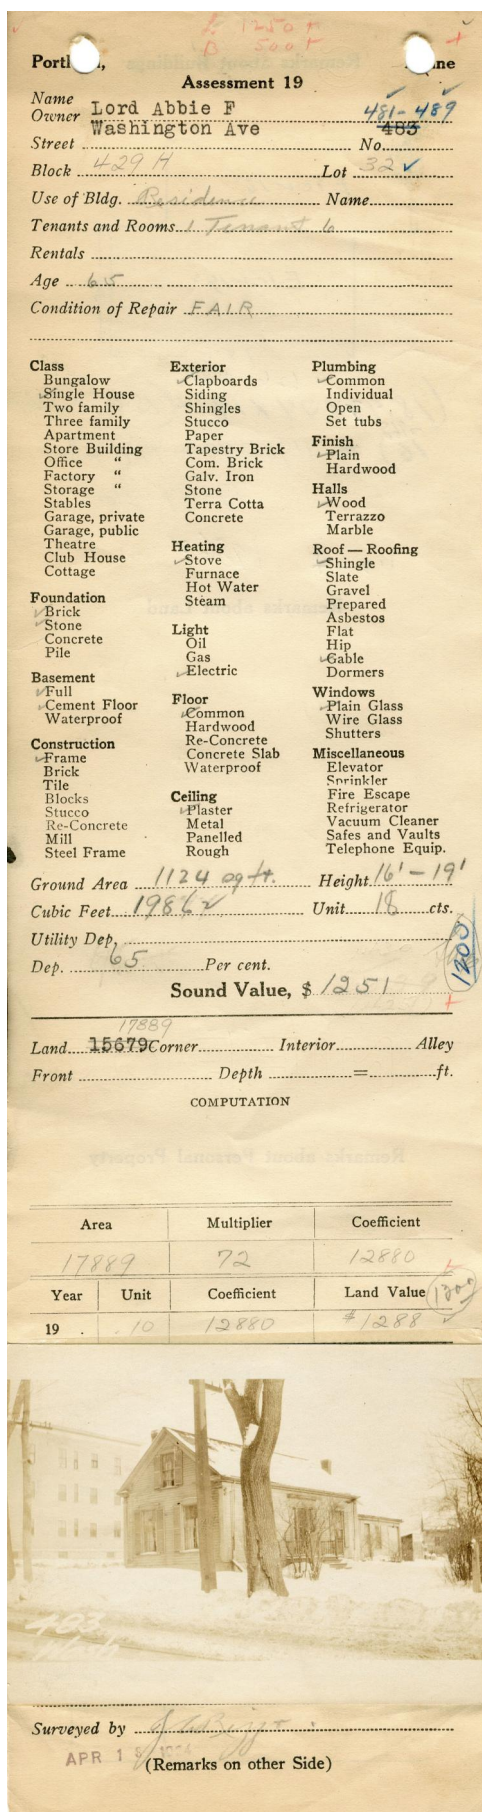 L 1250 +
B 500 +
Portl , ne
Assessment 19
Name
Owner Lord Abbie F 481-489
Washington Ave 483
Street No.
Block 429 H Lot 32 ✓
Use of Bldg. Residence Name
Tenants and Rooms 1 Tenant 6
Rentals
Age 65
Condition of Repair FAIR
Class
Bungalow
✓Single House
Two family
Three family
Apartment
Store Building
Office "
Factory "
Storage "
Stables
Garage, private
Garage, public
Theatre
Club House
Cottage
Foundation
✓Brick
✓Stone
Concrete
Pile
Basement
✓Full
✓Cement Floor
Waterproof
Construction
✓Frame
Brick
Tile
Blocks
Stucco
Re-Concrete
Mill
Steel Frame
Exterior
✓Clapboards
Siding
Shingles
Stucco
Paper
Tapestry Brick
Com. Brick
Galv. Iron
Stone
Terra Cotta
Concrete
Heating
✓Stove
Furnace
Hot Water
Steam
Light
Oil
Gas
✓Electric
Floor
✓Common
Hardwood
Re-Concrete
Concrete Slab
Waterproof
Ceiling
✓Plaster
Metal
Panelled
Rough
Plumbing
✓Common
Individual
Open
Set tubs
Finish
✓Plain
Hardwood
Halls
✓Wood
Terrazzo
Marble
Roof — Roofing
✓Shingle
Slate
Gravel
Prepared
Asbestos
Flat
Hip
✓Gable
Dormers
Windows
✓Plain Glass
Wire Glass
Shutters
Miscellaneous
Elevator
Sprinkler
Fire Escape
Refrigerator
Vacuum Cleaner
Safes and Vaults
Telephone Equip.
Ground Area 1124 sq ft. Height 16' - 19'
Cubic Feet 19862 Unit 18 cts.
Utility Dep,
Dep. 65 Per cent. 1200
Sound Value, $ 1251
17889
Land 15679 Corner Interior Alley
Front Depth = ft.
COMPUTATION
Area Multiplier Coefficient
17889 72 12880
Year Unit Coefficient Land Value 1200
19 . .10 12880 $1288 ✓
Surveyed by
APR 1
(Remarks on other Side)